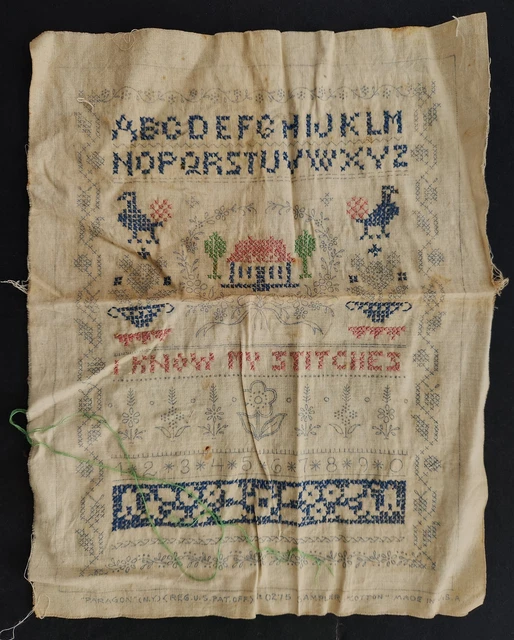 ABCDEFGHIJKLM
NOPQRSTUVWXYZ
I KNOW MY STITCHES
1*2*3*4*5*6*7*8*9*0
"PARAGON" (N.Y.) REG. U.S. PAT. OFF. SAMPLER COTTON MADE IN U.S.A.